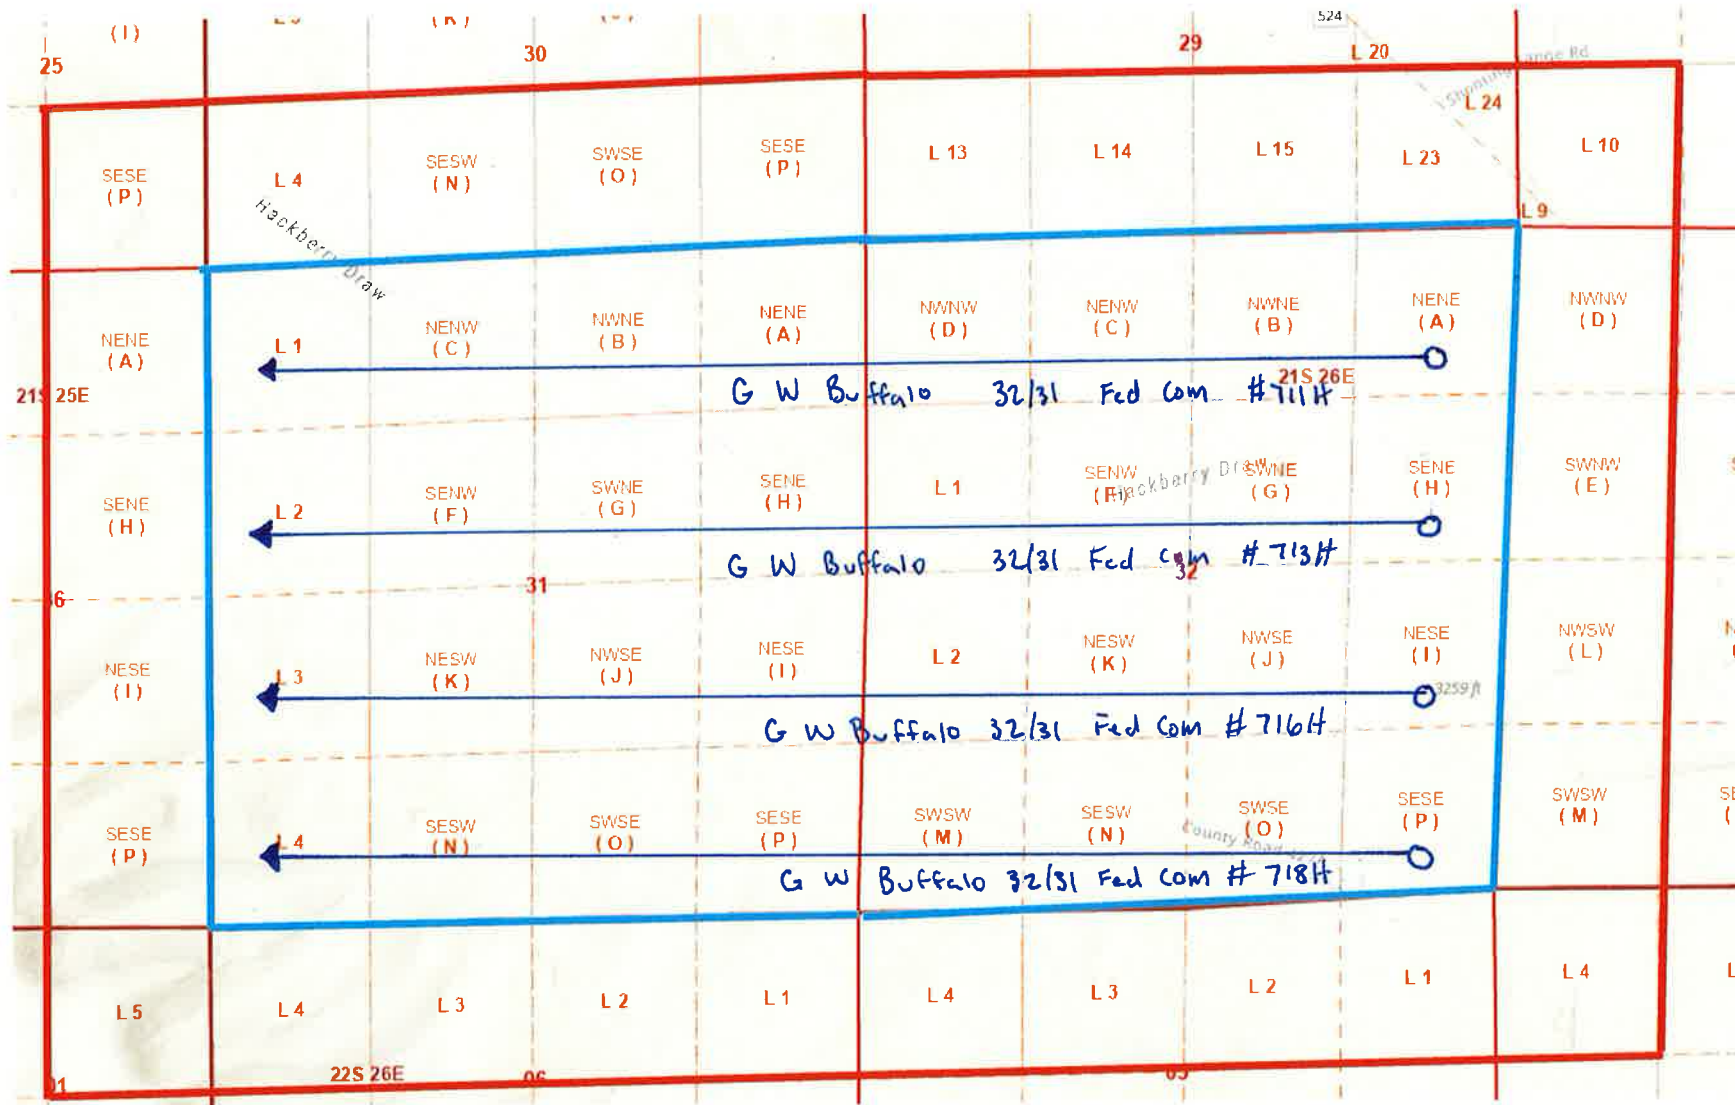 524
(I)
(K)
29
30
L 20
25
Shooting Range Rd
L 24
SESE
(P)
L 4
SESW
(N)
SWSE
(O)
SESE
(P)
L 13
L 14
L 15
L 23
L 10
Hackberry Draw
L 9
NENE
(A)
L 1
NENW
(C)
NWNE
(B)
NENE
(A)
NWNW
(D)
NENW
(C)
NWNE
(B)
NENE
(A)
NWNW
(D)
21S 25E
21S 26E
G W Buffalo 32/31 Fed Com #711H
SENE
(H)
L 2
SENW
(F)
SWNE
(G)
SENE
(H)
L 1
SENW
(F)
Hackberry Draw
SWNE
(G)
SENE
(H)
SWNW
(E)
G W Buffalo 32/31 Fed Com #713H
32
31
36
NESE
(I)
L 3
NESW
(K)
NWSE
(J)
NESE
(I)
L 2
NESW
(K)
NWSE
(J)
NESE
(I)
NWSW
(L)
3259 ft
G W Buffalo 32/31 Fed Com #716H
SESE
(P)
L 4
SESW
(N)
SWSE
(O)
SESE
(P)
SWSW
(M)
SESW
(N)
SWSE
(O)
SESE
(P)
SWSW
(M)
County Road
G W Buffalo 32/31 Fed Com #718H
L 5
L 4
L 3
L 2
L 1
L 4
L 3
L 2
L 1
L 4
01
22S 26E
06
05